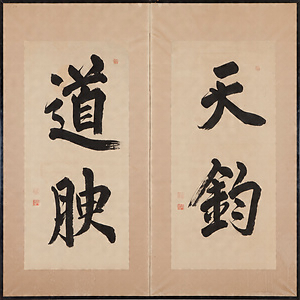 天鈞
道腴